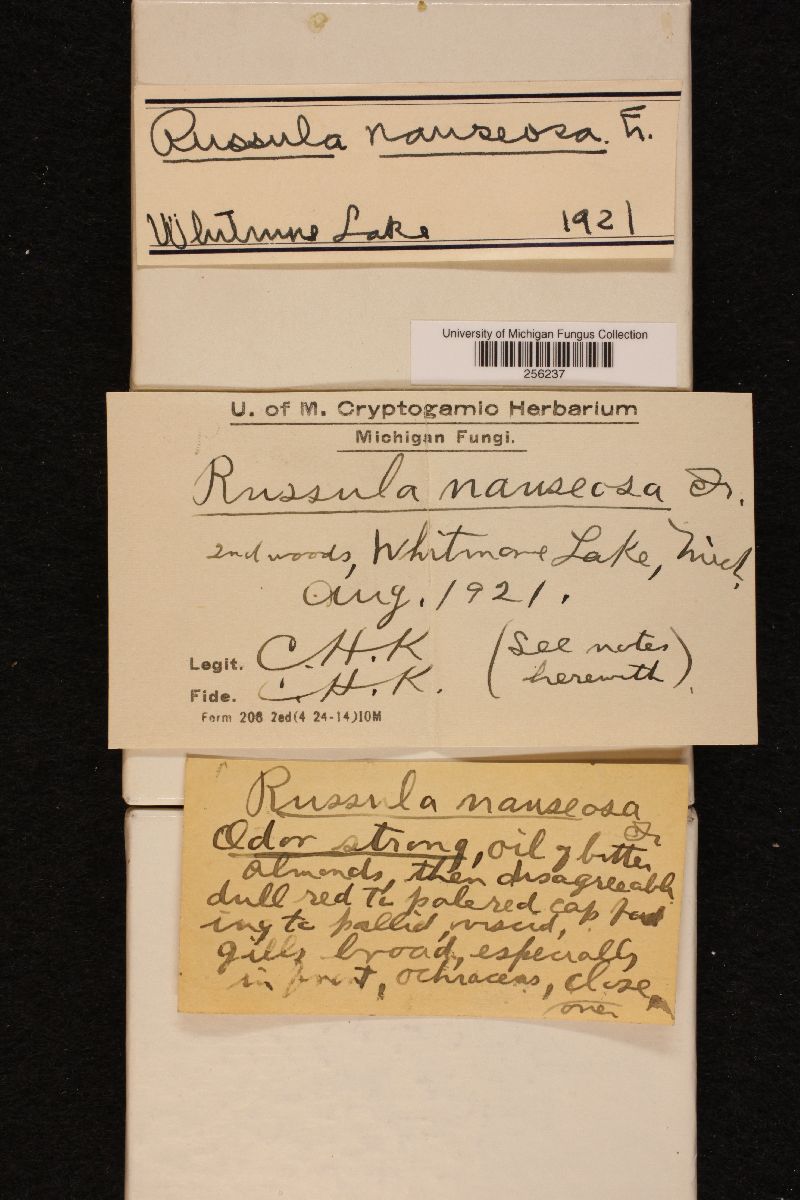 Russula nauseosa. Fr.
Whitmore Lake 1921
University of Michigan Fungus Collection
256237
U. of M. Cryptogamic Herbarium
Michigan Fungi.
Russula nauseosa Fr.
2nd woods, Whitmore Lake, Mich.
Aug. 1921.
Legit. C.H.K (See notes
Fide. C.H.K. herewith).
Form 206 2ed(4 24-14)10M
Russula nauseosa
Fr
Odor strong, oil of bitter
almonds, then disagreeable
dull red to pale red cap fad
ing to pallid, viscid,
gills broad, especially
in front, ochraceus, close,
over